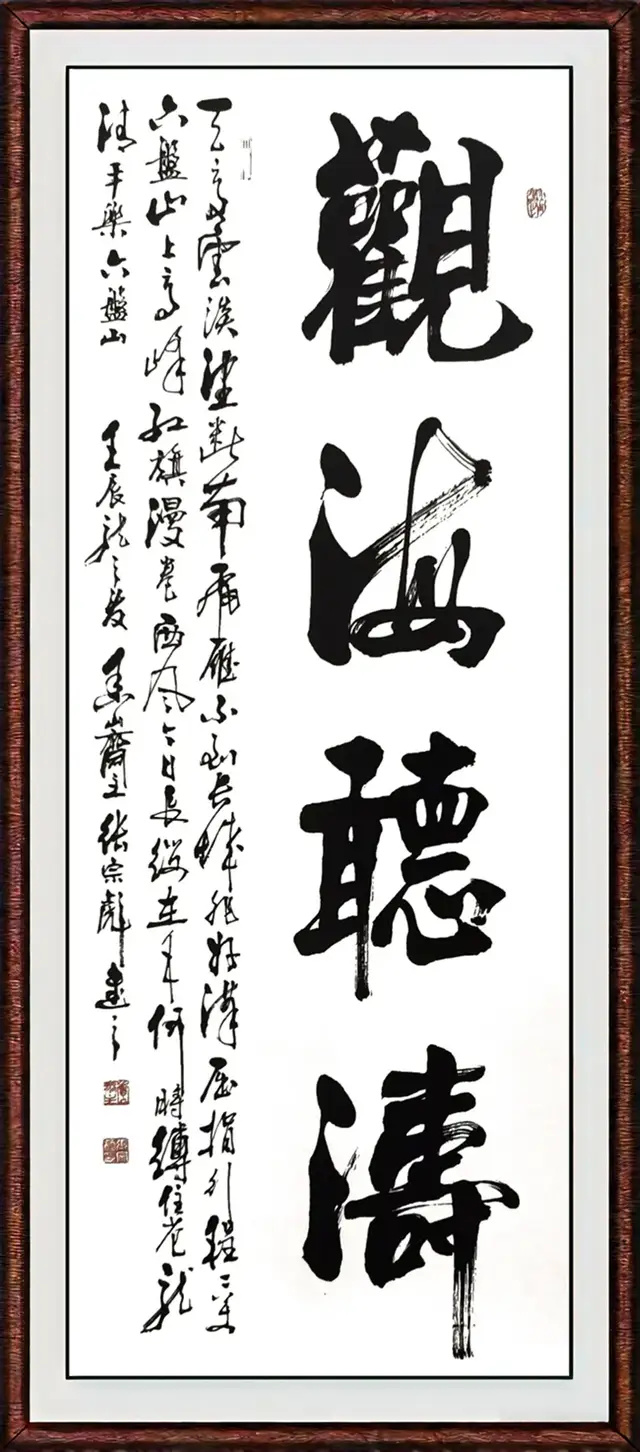 觀海聽濤
天高雲淡望断南飛雁不到长城非好漢屈指行程二万
六盤山上高峰红旗漫卷西风今日長缨在手何時縛住苍龙
清平樂六盤山 壬辰龙之岁 山齋主张宗彪書之